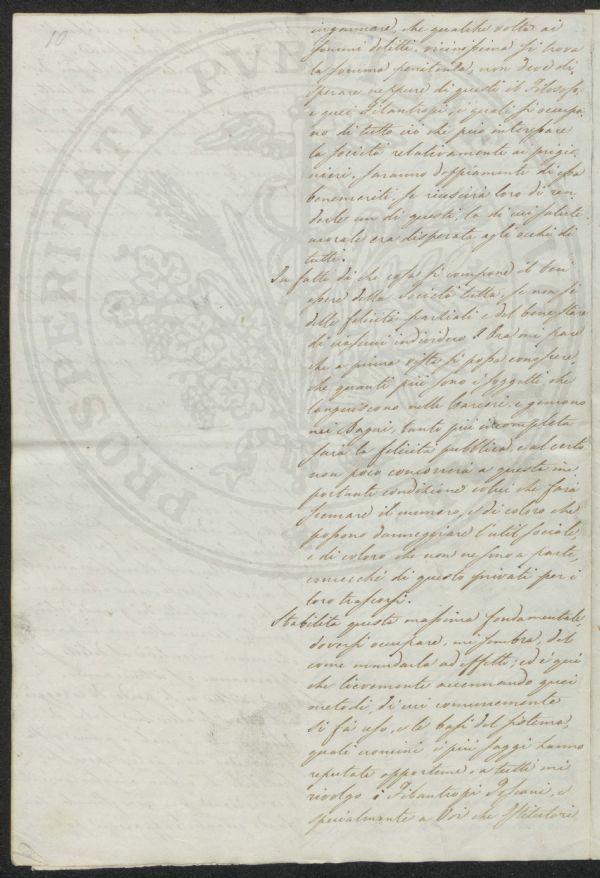 10
PROSPERITATI PVBLICAE
ingannare, che qualche volta ai
sommi delitti vicinissima si trova
la somma penitenza, non deve di
sperare neppure di questi il Filosofo,
e quei Filantropi, i quali si occupa
no di tutto ciò che può interessare
la società relativamente ai prigio
nieri, saranno doppiamente di essa
benemeriti, se riuscirà loro di ren
derle un di questi, la di cui salute
morale era disperata agli occhi di
tutti.
In fatti di che cosa si compone il ben
essere della società tutta, se non se
delle felicità parziali e del benessere
di ciascun individuo? Ora mi pare
che a prima vista si possa conoscere
che quanti più sono i soggetti che
languiscono nelle Carceri, e gemono
nei Bagni, tanto più incompleta
sarà la felicità pubblica, e al certo
non poco concorrerà a questa im
portante condizione colui che farà
scemare il numero, e di coloro che
possono danneggiare l'util sociale
e di coloro che non ne sono a parte,
comecché di questo privati per i
loro trascorsi.
Stabilita questa massima fondamentale
doversi occupare, mi sembra, del
come mandarla ad effetto; ed è qui
che lievemente accennando quei
metodi, di cui comunemente
si fa uso, e le basi del sistema,
quali uomini i più saggi hanno
reputate opportune, a tutti mi
rivolgo i Filantropi Toscani, e
specialmente a Voi che Istitutori